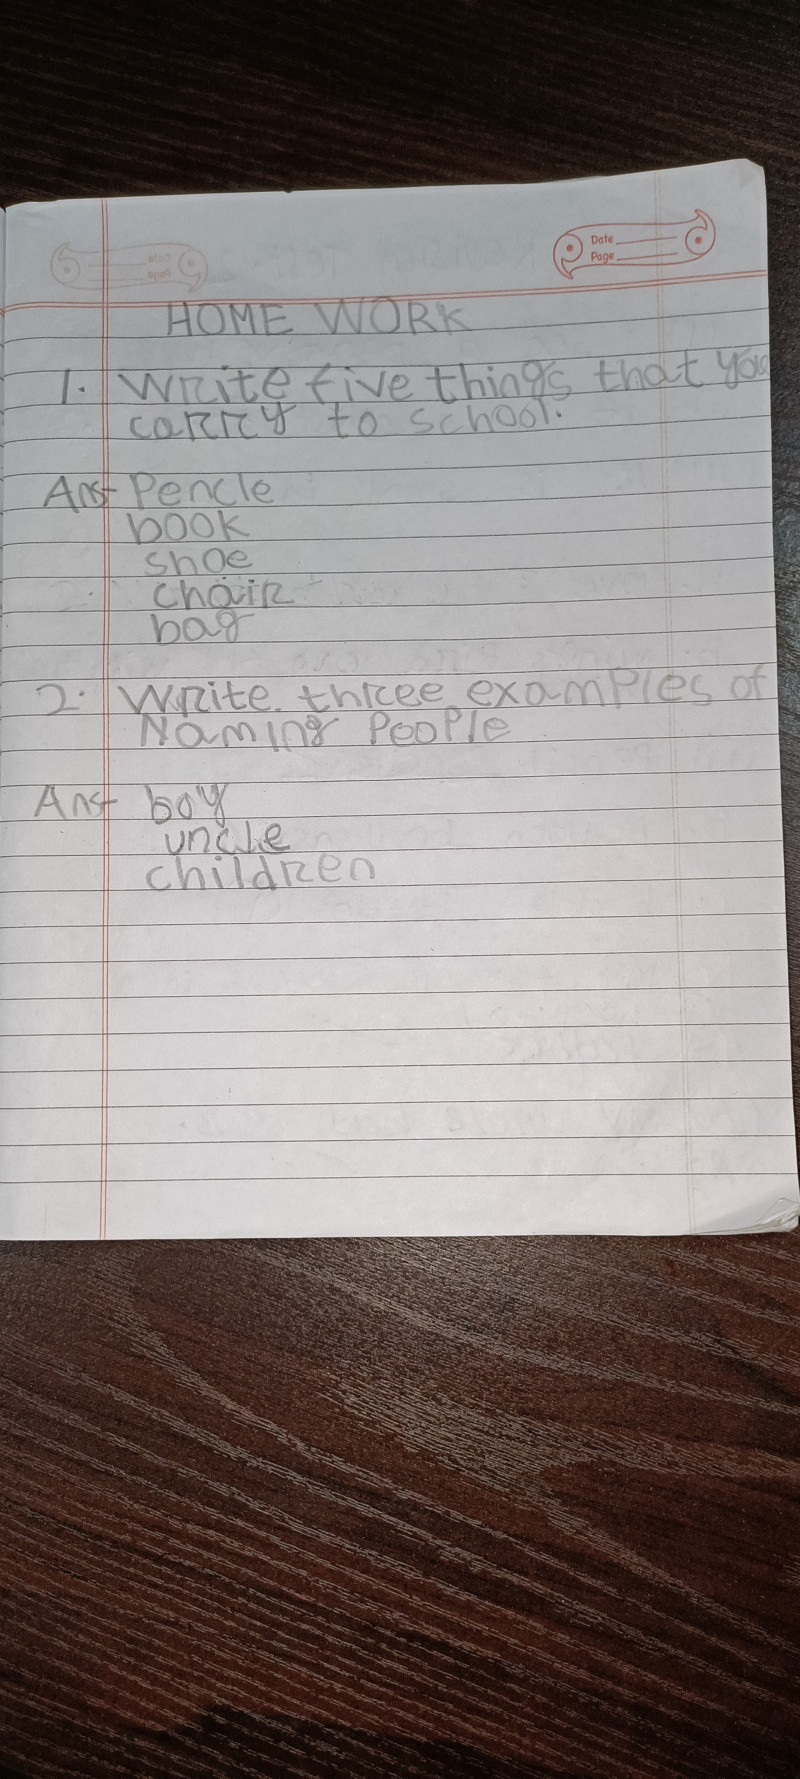 Date
Page
HOME WORK
1. Write five things that you
carry to school.
Ans Pencle
book
shoe
chair
bag
2. Write three examples of
Naming People
Ans boy
uncle
children